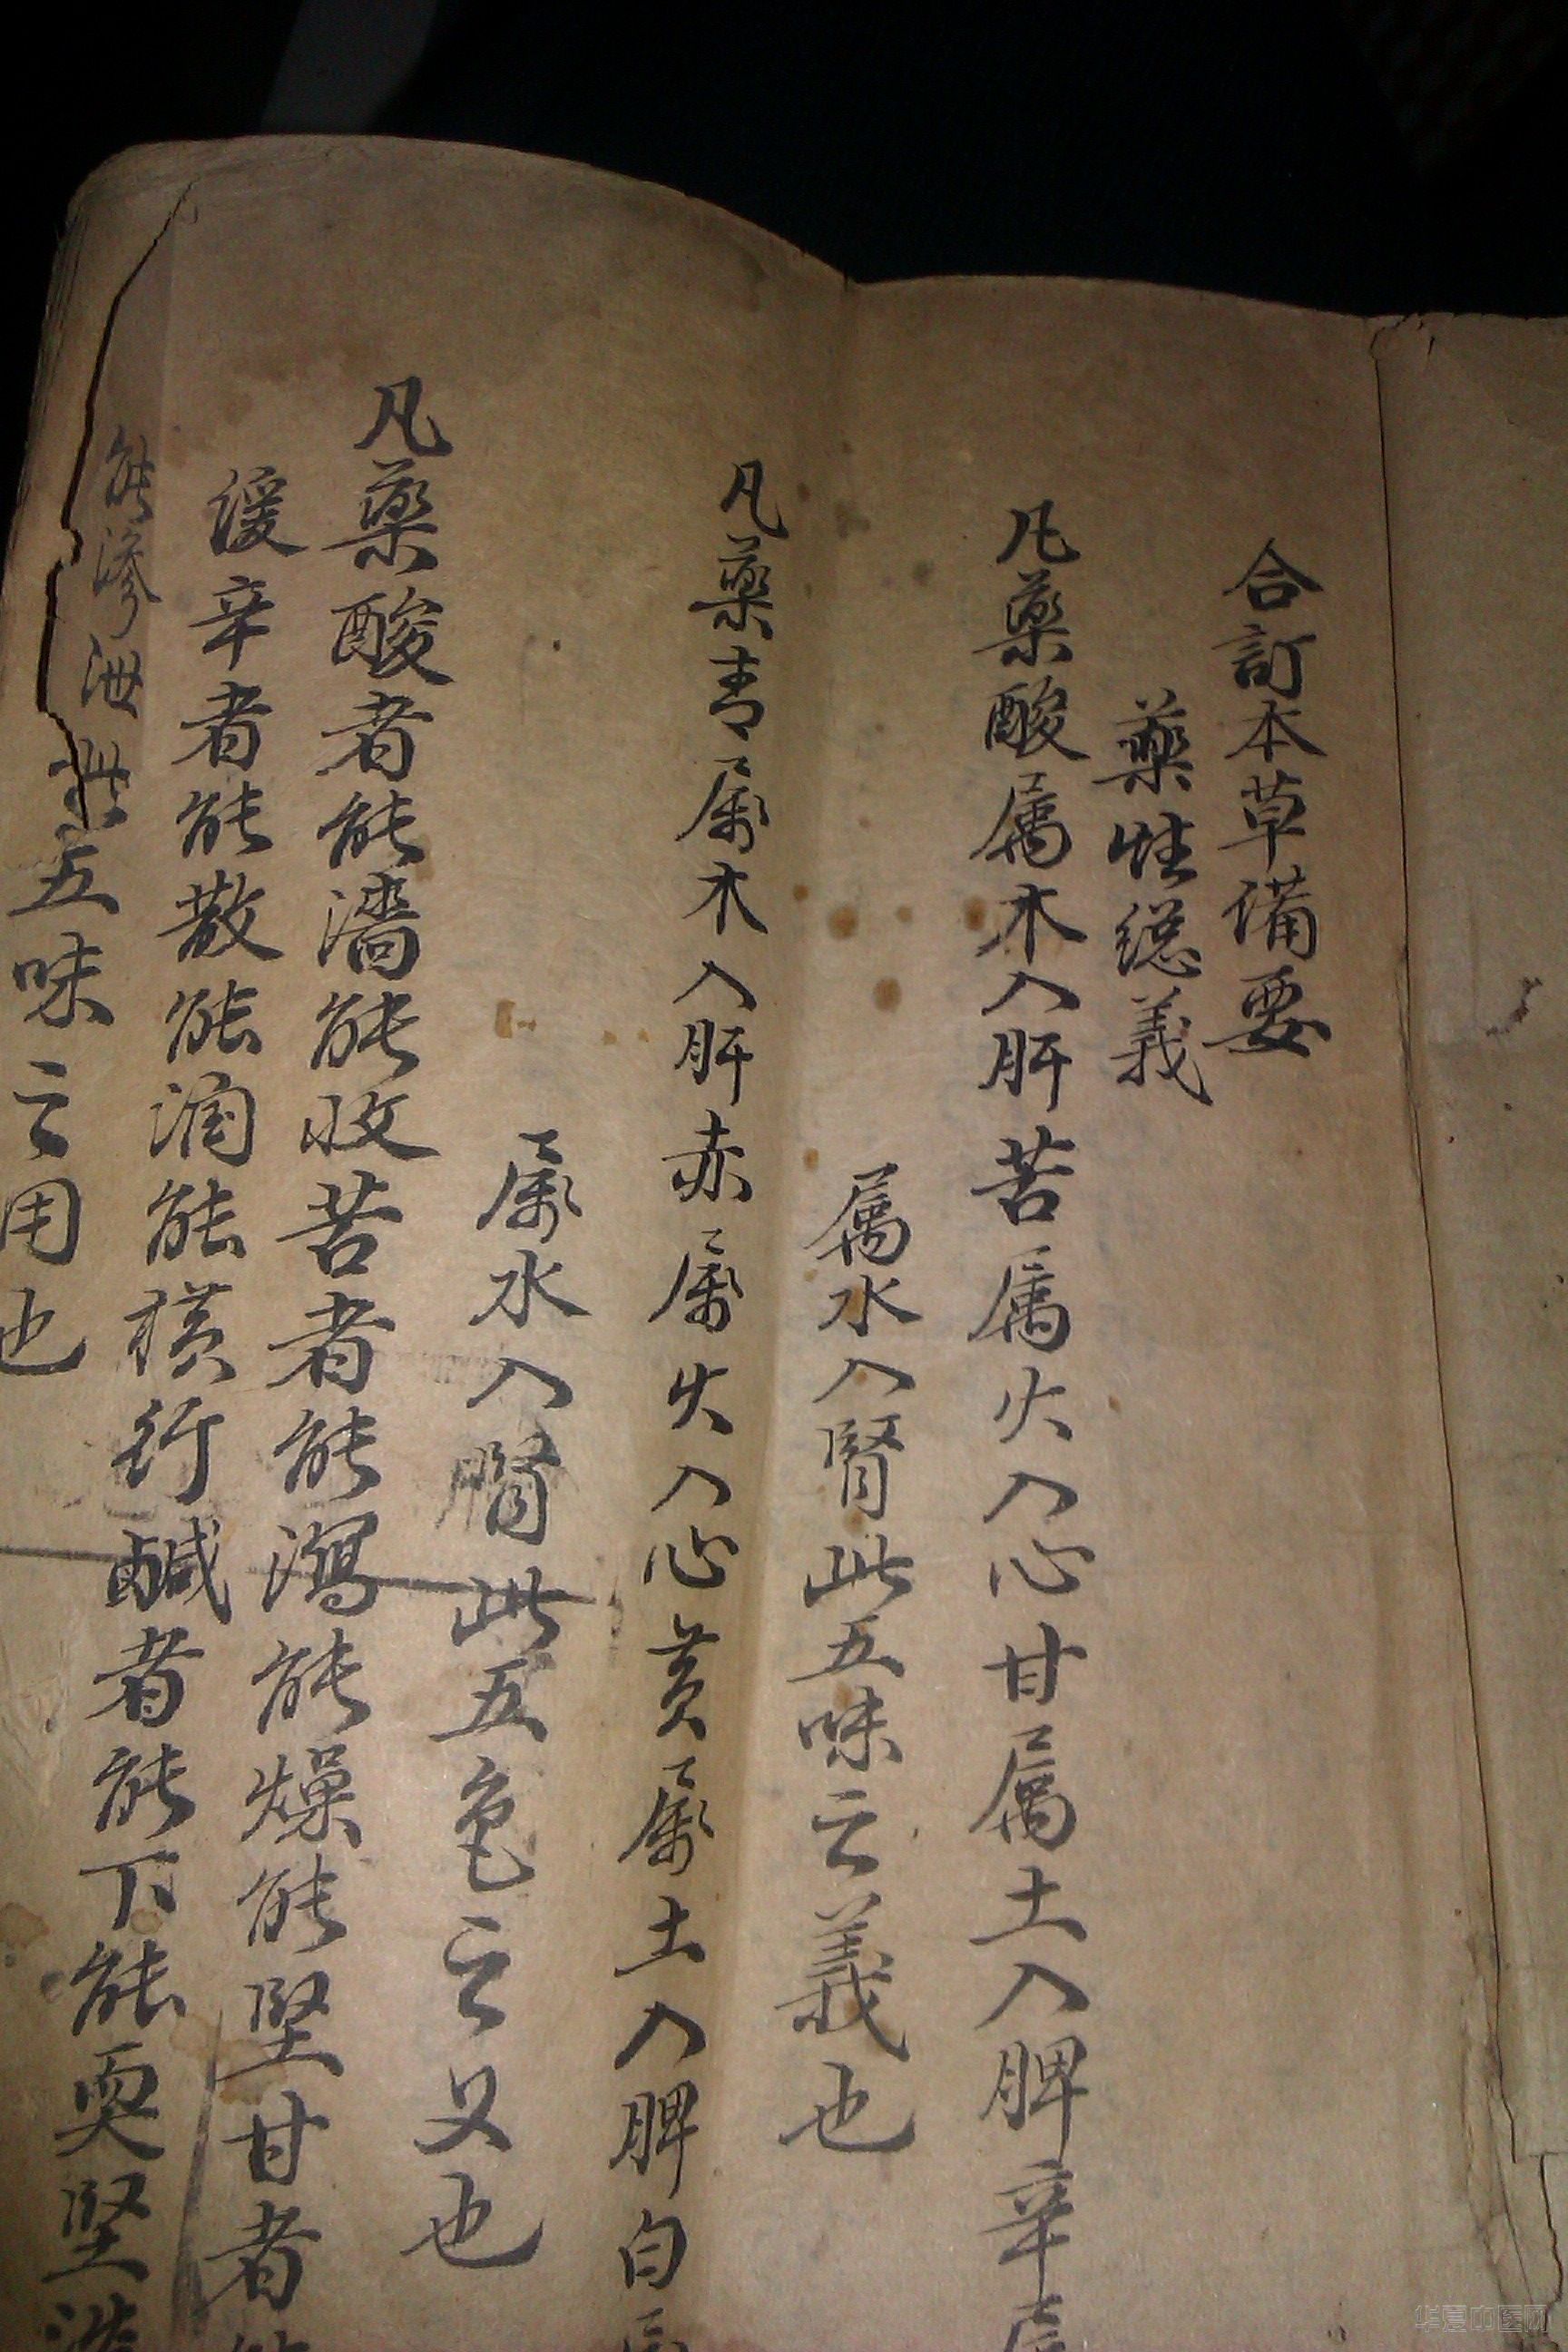 合訂本草備要
藥性總義
凡藥酸属木入肝苦属火入心甘属土入脾辛
属水入腎此五味之義也
凡藥青属木入肝赤属火入心黄属土入脾白
属水入腎此五色之义也
凡藥酸者能濇能收苦者能瀉能燥能堅甘者
緩辛者能散能潤能横行鹹者能下能耎堅淡
能滲泄此五味之用也
华夏中医网